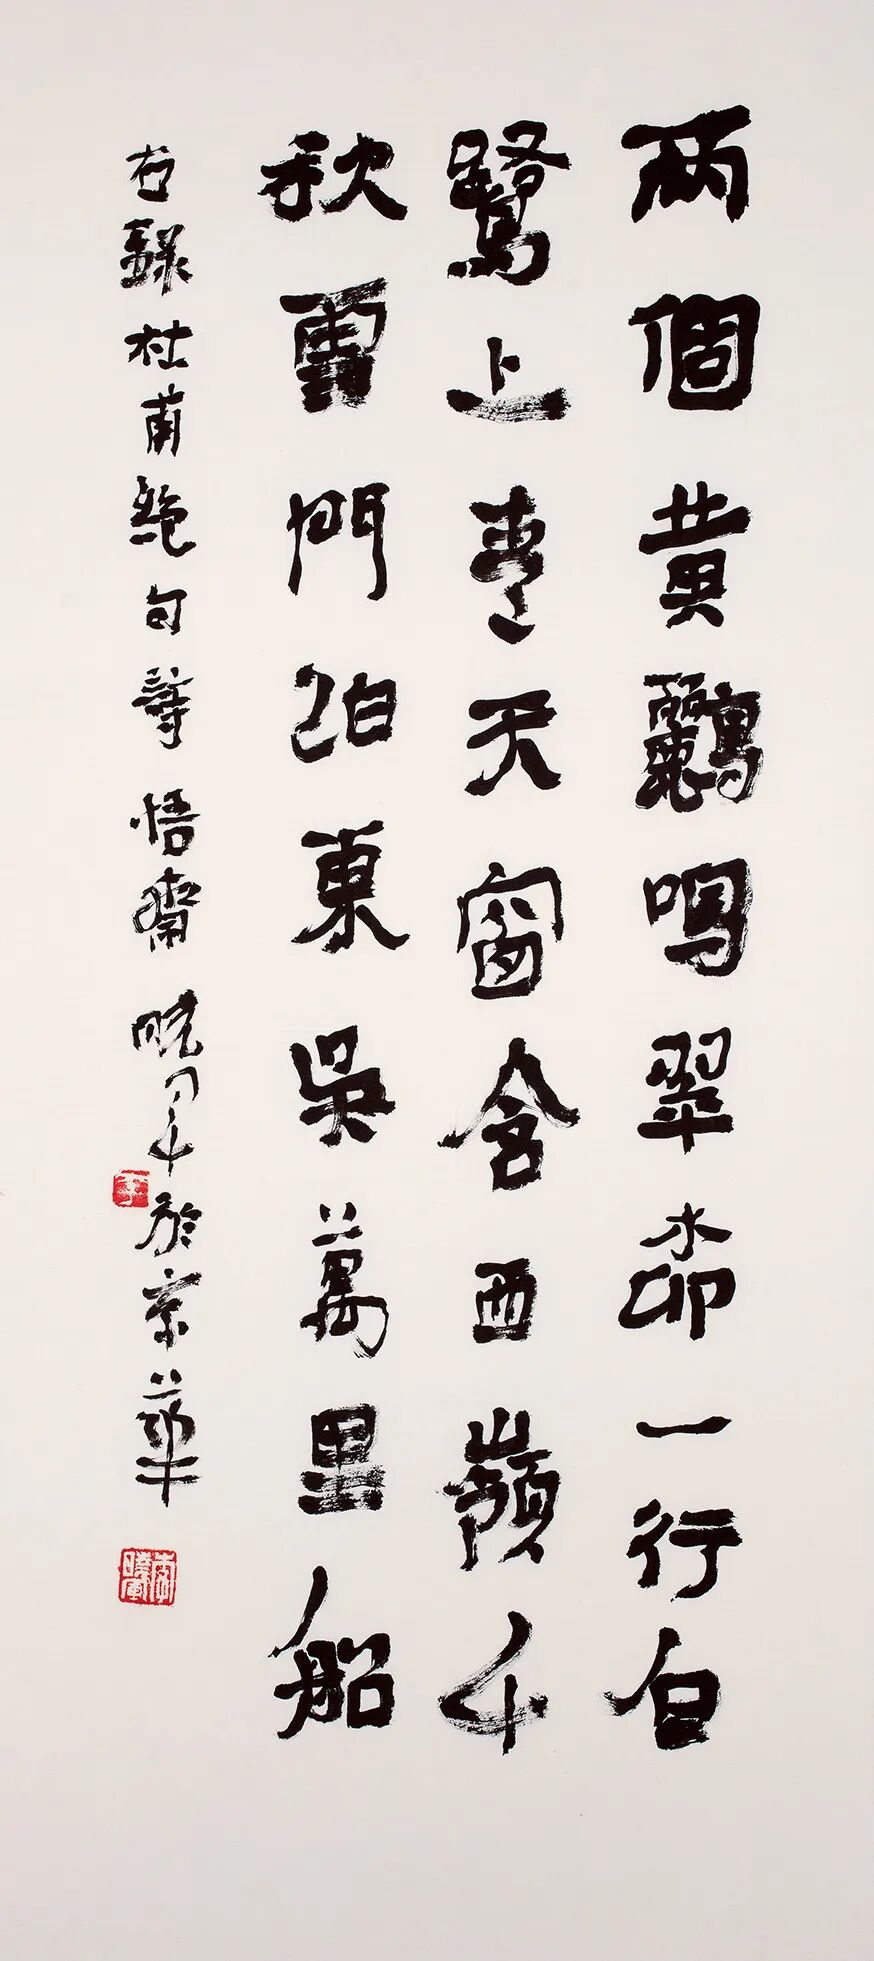 兩個黃鸝鳴翠柳一行白
鷺上青天窗含西嶺千
秋雪門泊東吳萬里船
右錄杜甫絕句詩悟齋曉軍於京華